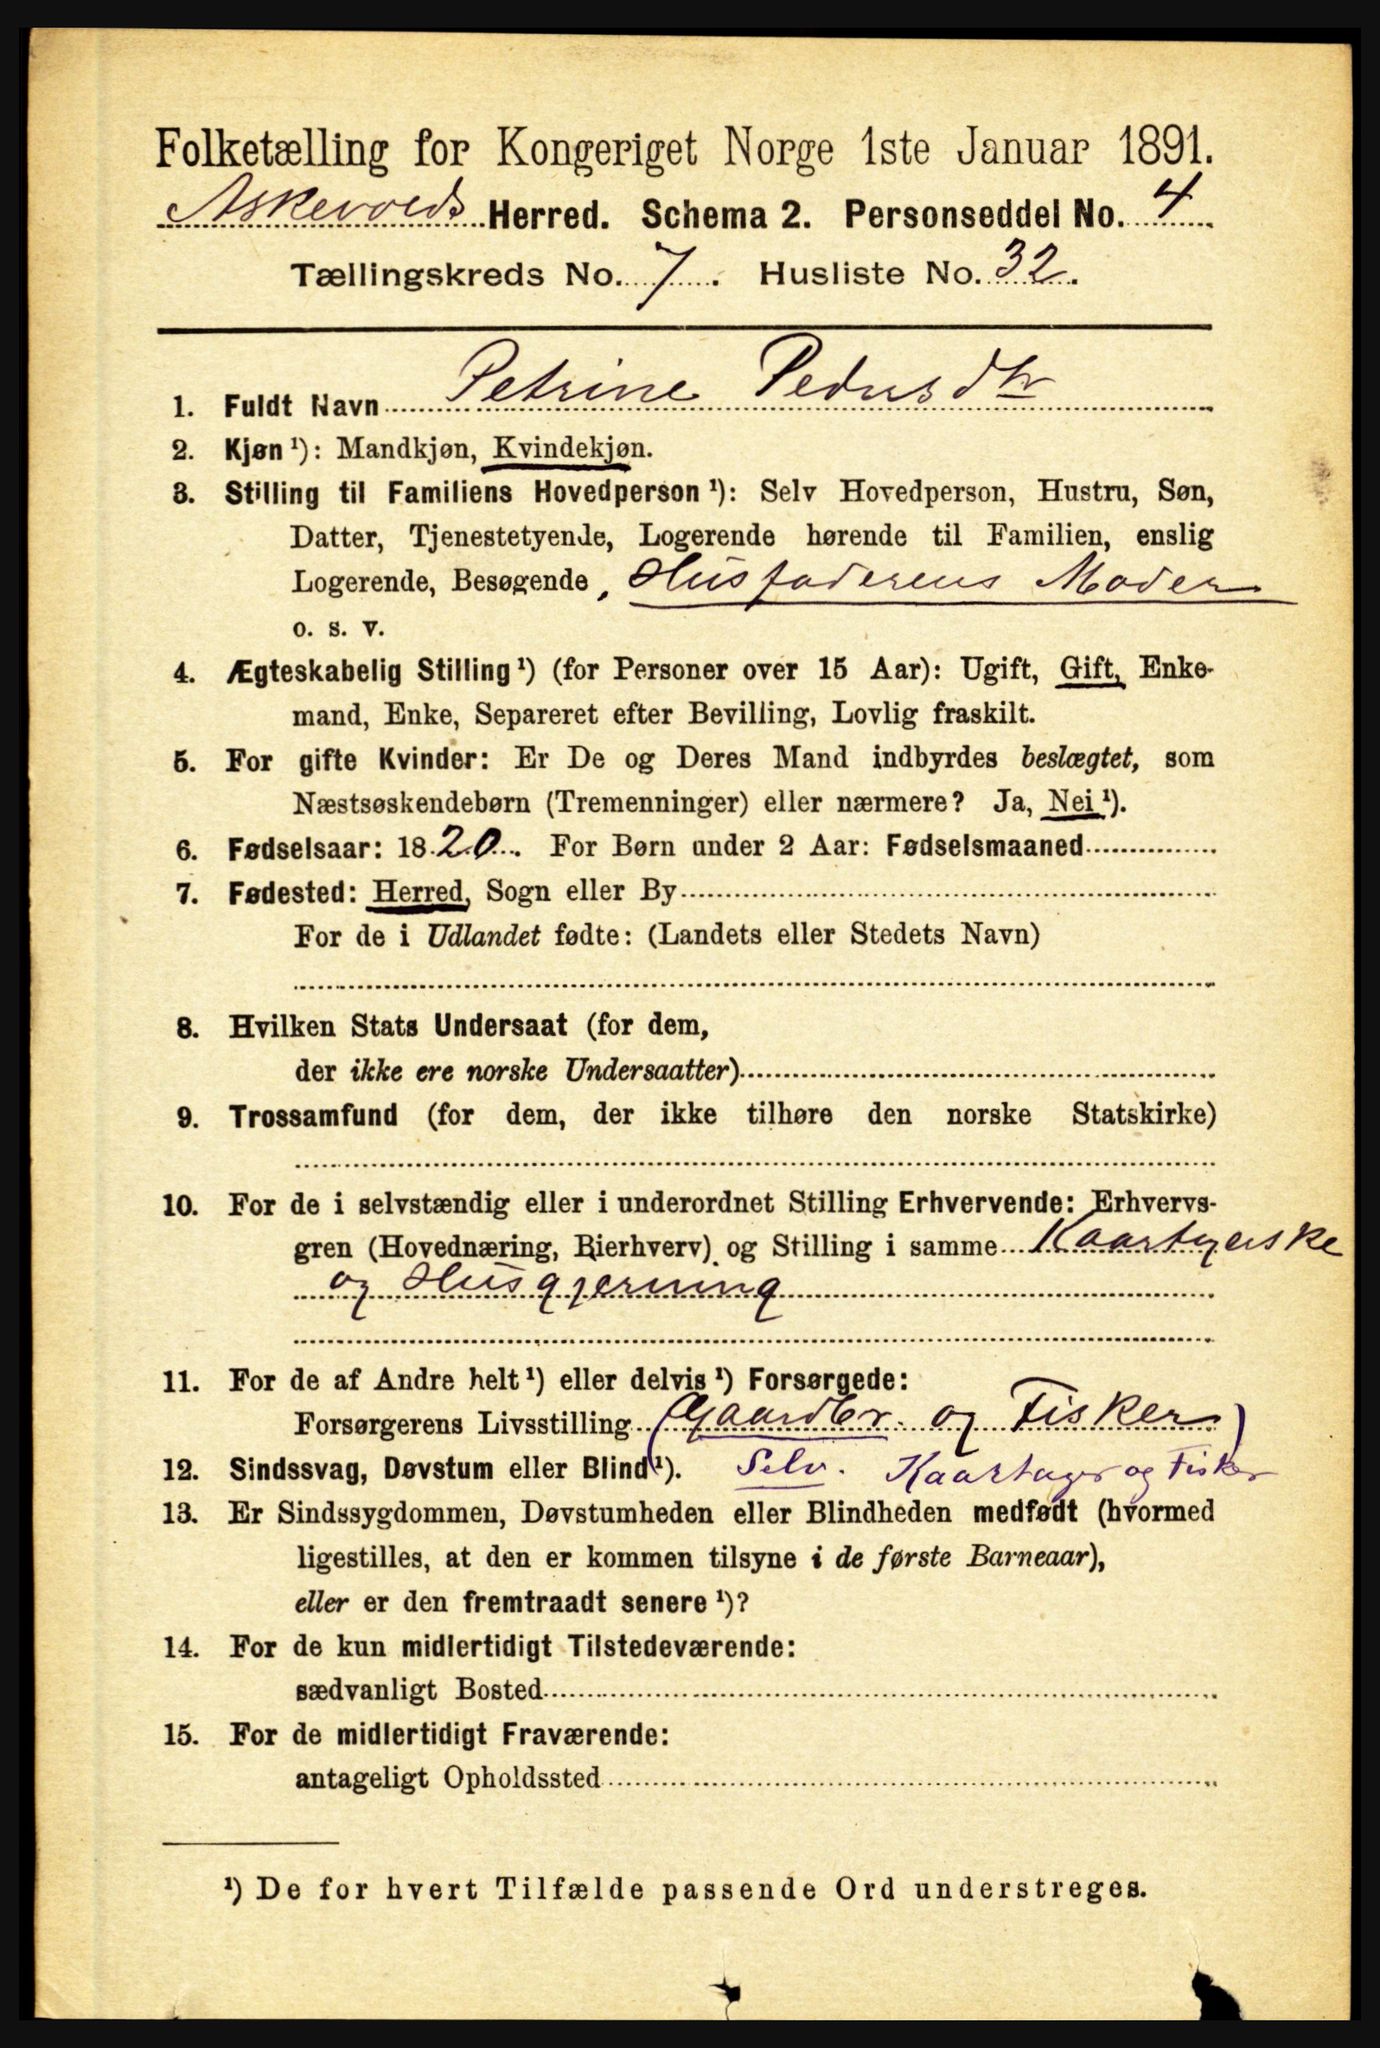 Folketælling for Kongeriget Norge 1ste Januar 1891.
Askevolds Herred. Schema 2. Personseddel No. 4
Tællingskreds No. 7. Husliste No. 32.
1. Fuldt Navn Petrine Pedersdtr
2. Kjøn ¹): Mandkjøn, Kvindekjøn.
3. Stilling til Familiens Hovedperson ¹): Selv Hovedperson, Hustru, Søn,
Datter, Tjenestetyende, Logerende hørende til Familien, enslig
Logerende, Besøgende, Husfaderens Moder
o. s. v.
4. Ægteskabelig Stilling ¹) (for Personer over 15 Aar): Ugift, Gift, Enke-
mand, Enke, Separeret efter Bevilling, Lovlig fraskilt.
5. For gifte Kvinder: Er De og Deres Mand indbyrdes beslægtet, som
Næstsøskendebørn (Tremenninger) eller nærmere? Ja, Nei ¹).
6. Fødselsaar: 1820. For Børn under 2 Aar: Fødselsmaaned
7. Fødested: Herred, Sogn eller By
For de i Udlandet fødte: (Landets eller Stedets Navn)
8. Hvilken Stats Undersaat (for dem,
der ikke ere norske Undersaatter)
9. Trossamfund (for dem, der ikke tilhøre den norske Statskirke)
10. For de i selvstændig eller i underordnet Stilling Erhvervende: Erhvervs-
gren (Hovednæring, Bierhverv) og Stilling i samme Kaartyerske
og Husgjerning
11. For de af Andre helt ¹) eller delvis ¹) Forsørgede:
Forsørgerens Livsstilling (Gaardbr. og Fisker)
12. Sindssvag, Døvstum eller Blind ¹). Selv. Kaartager og Fisker
13. Er Sindssygdommen, Døvstumheden eller Blindheden medfødt (hvormed
ligestilles, at den er kommen tilsyne i de første Barneaar),
eller er den fremtraadt senere ¹)?
14. For de kun midlertidigt Tilstedeværende:
sædvanligt Bosted
15. For de midlertidigt Fraværende:
antageligt Opholdssted
¹) De for hvert Tilfælde passende Ord understreges.